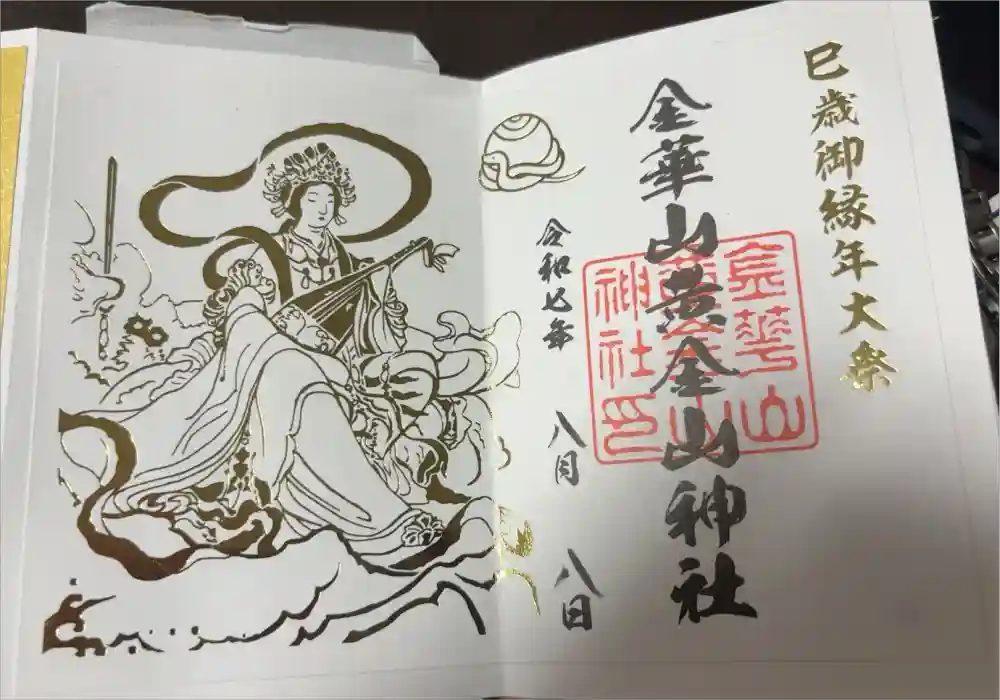 巳歳御縁年大祭
金華山黄金山神社
金華山
黄金山
神社印
令和七年
八月
八日